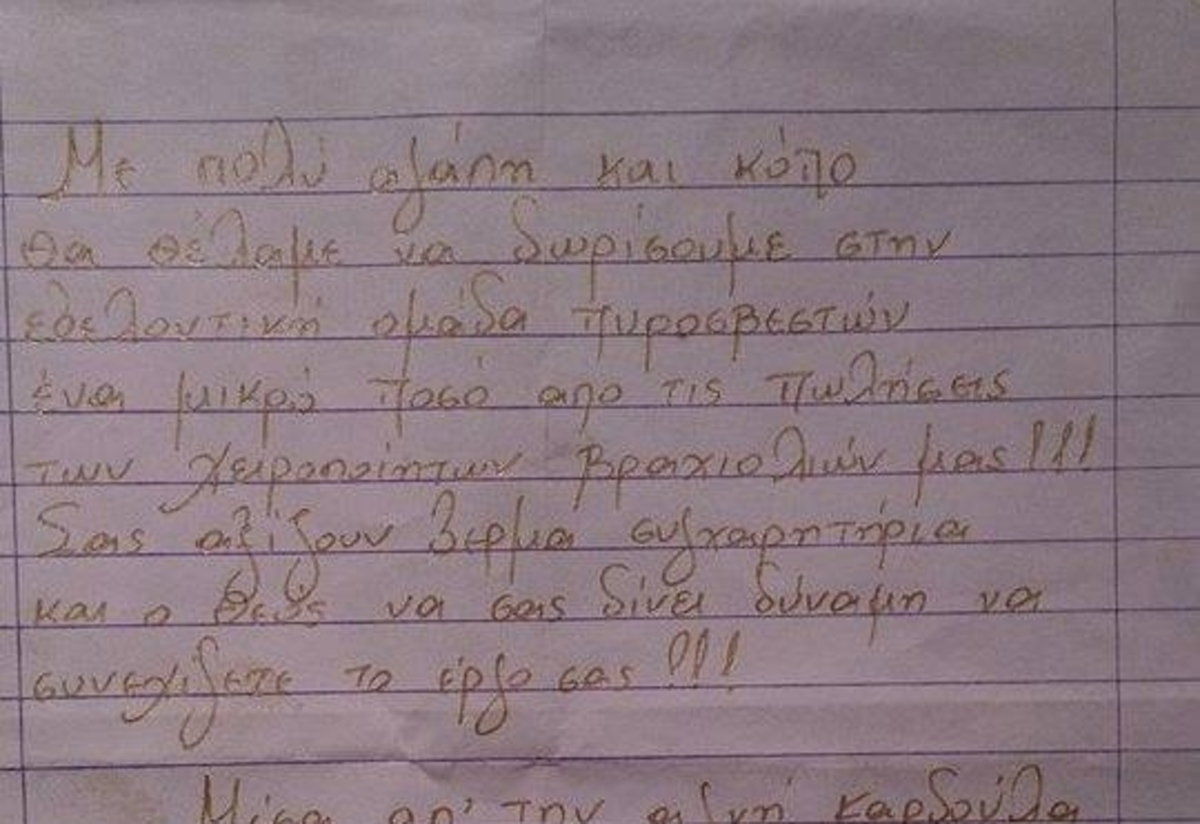 Με πολύ αγάπη και κόπο
θα θέλαμε να δωρίσουμε στην
εθελοντική ομάδα πυροσβεστών
ένα μικρό ποσό απο τις πωλήσεις
των χειροποίητων βραχιολιών μας!!!
Σας αξίζουν θερμά συγχαρητήρια
και ο Θεός να σας δίνει δύναμη να
συνεχίζετε το έργο σας!!!
Μέσα απ' την αγνή καρδούλα